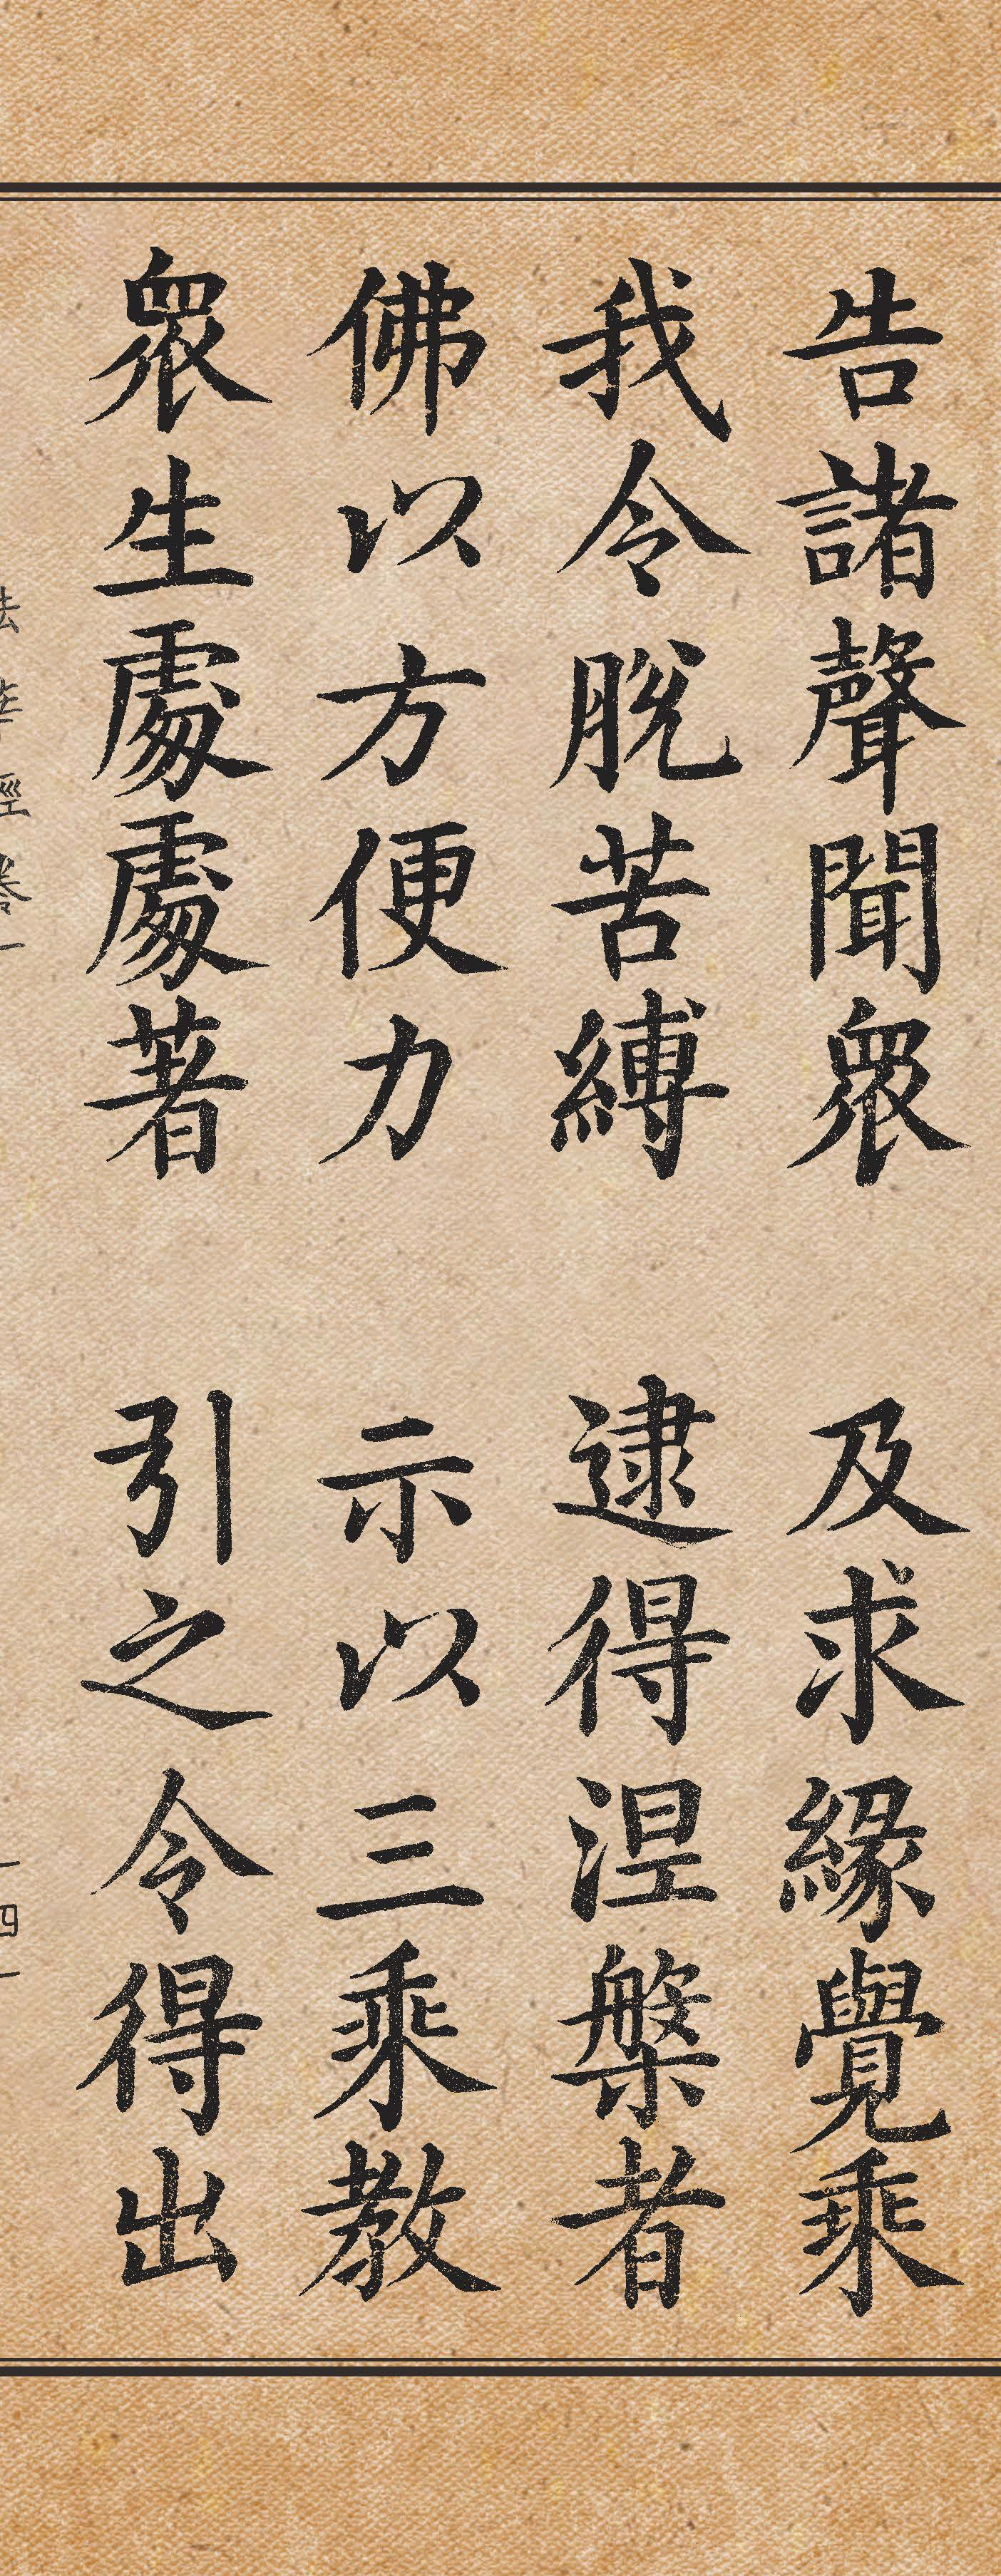 告諸聲聞衆　及求緣覺乘
我令脫苦縛　逮得涅槃者
佛以方便力　示以三乘教
衆生處處著　引之令得出
法華經卷一
一四一